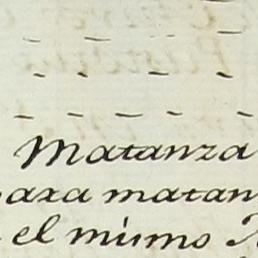 Matanza
para matan
el mismo